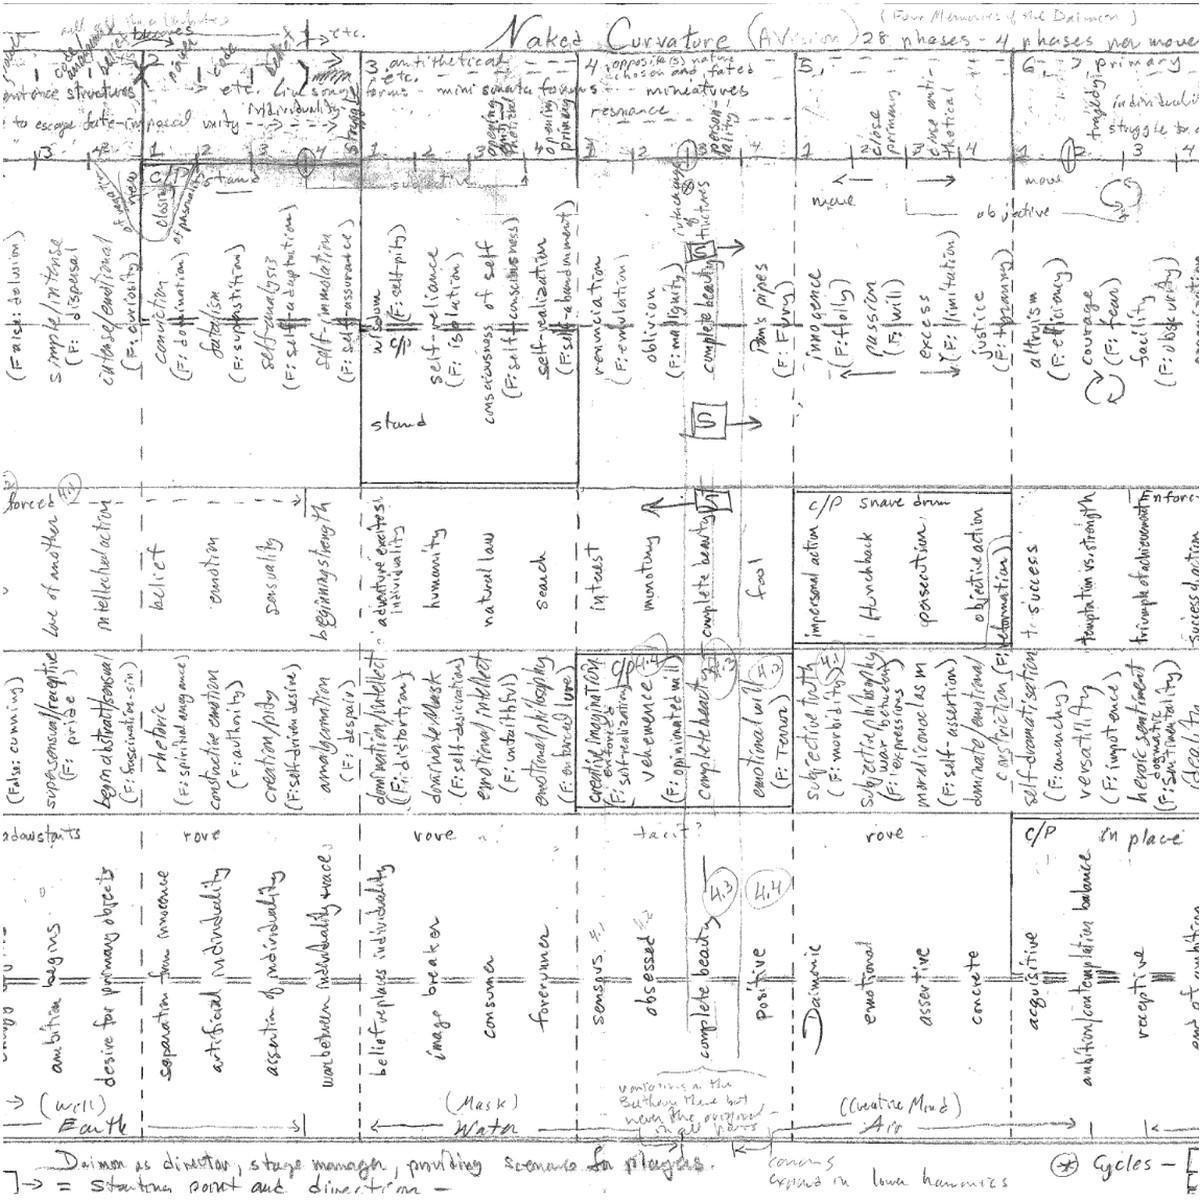 Naked Curvature (A Vision) 28 phases - 4 phases per move
(Four Memories of the Daimon)
etc.
2
3 antithetical
etc.
forms - mini sonata forms
4 opposite(s) nature
chosen and fated
miniatures
resonance
5.
close primary
close antithetical
6. primary
tragedy
individuali
struggle to
sentence structures
to escape fate-imposed unity
individuality
strength
opening antithetical
opening primary
personality
3 4 1 2 3 4 1 2 3 4 1 2 3 4 1 2 3 4 1 2 3 4
C/P
closing
stand
subjective
move
objective
move
(False: delusion)
simple/intense
(F: dispersal
intense/emotional
(F: curiosity)
conviction
(F: domination)
fatalism
(F: superstition)
self-analysis
(F: self-adaptation)
self-immolation
(F: self-assurance)
wisdom
(F: self-pity)
C/P
self-reliance
(F: isolation)
consciousness of self
(F: self-consciousness)
self-realization
(F: self-abandonment)
stand
renunciation
(F: emulation)
oblivion
(F: malignity)
complete beauty
Pan's pipes
(F: Fury)
innocence
(F: folly)
passion
(F: will)
excess
(F: limitation)
justice
(F: tyranny)
altruism
(F: efficiency)
courage
(F: fear)
facility
(F: obscurity)
S
S
S
forced
4.1
love of another
intellectual action
belief
emotion
sensuality
beginning strength
adventure excites individuality
humanity
natural law
search
interest
monotony
complete beauty
fool
C/P snare drum
impersonal action
Hunchback
persecution
objective action
success
temptation vs. strength
triumph of achievement
enforc
success of action
(False: cunning)
supersensual/receptive
(F: pride)
begin abstract/sensual
(F: fascination-sin
rhetoric
(F: spiritual arrogance)
constructive emotion
(F: authority)
creation/pity
(F: self-driven desire)
amalgamation
(F: despair)
domination/intellect
(F: distortion)
dominate/Mask
(F: self-desecration)
emotional/intellect
(F: unfaithful)
emotional/philosophy
(F: enforced lure)
C/P
creative imagination
(F: enforced self-realization)
4.4
vehemence
(F: opinionated will)
complete beauty
4.3
emotional will
(F: Terror)
subjective truth
(F: morbidity)
subjective philosophy
(F: war between expressions)
moral iconoclasm
(F: self-assertion)
dominate/emotional constriction
(F: reformation)
self-dramatisation
(F: anarchy)
versatility
(F: impotence)
heroic sentiment
(F: dogmatic sentimentality)
rove
rove
tacit?
rove
C/P in place
4.3
4.4
ambition begins
desire for primary objects
separation from innocence
artificial individuality
assertion of individuality
war between individuality + race
belief replaces individuality
image breaker
consumer
forerunner
sensous
obsessed
complete beauty
positive
Daimonic
emotional
assertive
concrete
acquisitive
ambition/contemplation balance
receptive
end of ambition
(Will)
Earth
(Mask)
Water
variations on the
Beethoven theme but
never the original
in all parts
(Creative Mind)
Air
Daimon as director, stage manager, providing scenario for players.
= starting point and direction -
canons
expand in lower harmonics
Cycles -